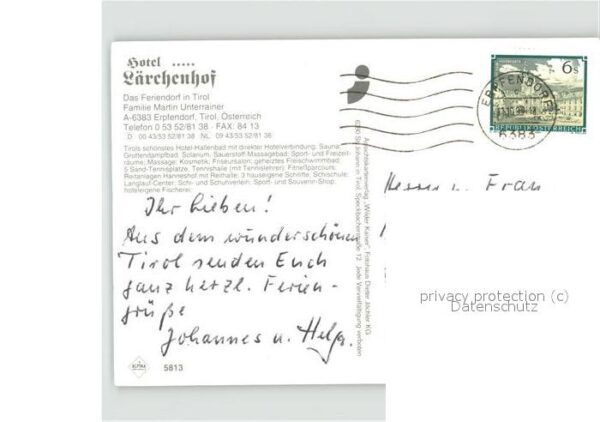 Hotel .....
Lärchenhof
Das Feriendorf in Tirol
Familie Martin Unterrainer
A-6383 Erpfendorf, Tirol, Österreich
Telefon 0 53 52/81 38 · FAX: 84 13
D 00 43/53 52/81 38 NL 09 43/53 52/81 38
Tirols schönstes Hotel-Hallenbad mit direkter Hotelverbindung; Sauna;
Großendampfbad; Solarium, Sauerstoff-Massagebad; Sport- und Freizeit-
räume; Massage; Kosmetik; Friseursalon; geheiztes Freischwimmbad
5 Sand-Tennisplätze, Tennishalle (mit Tennislehrer); Fitnessparcour;
Reitanlagen Hanneshof mit Reithalle; 3 hauseigene Schilifte, Schischule;
Langlauf-Center; Schi- und Schuhverleih; Sport- und Souvenir-Shop;
hoteleigene Fischerei
Ihr Lieben!
Aus dem wunderschönen
Tirol senden Euch
ganz herzl. Ferien-
grüße
Johannes u. Helga.
5813
Ansichtskartenverlag „Wilder Kaiser“, Fotohaus Dieter Jöchler KG
6380 St. Johann in Tirol, Speckbacherstraße 12 Jede Vervielfältigung verboten
6 S
REPUBLIK ÖSTERREICH
ERPFENDORF
6383
Herrn u. Frau
privacy protection (c)
Datenschutz